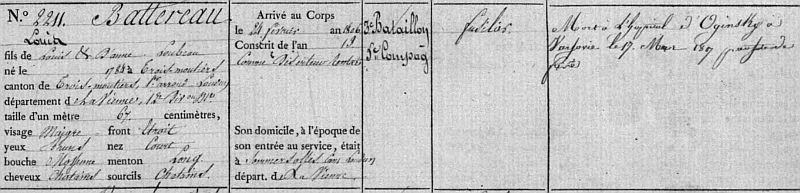 N.º 2211. Battereau
Louis
fils de Louis & Jeanne
né le 1783 à Trois-moutiers
canton de Trois-moutiers, Loudun
département d la Vienne,
taille d'un mètre 67 centimètres,
visage Maigre front Etroit
yeux Bruns nez Court
bouche Moyenne menton Long
cheveux Chatains sourcils Chatains.
Arrivé au Corps
le 24 février an 1806
Conscrit de l'an 13
Comme Déserteur
Son domicile, à l'époque de
son entrée au service, était
à
départ. de La Vienne
3e Bataillon
Compag
fusilier
Mort à L'hopital d' Oginsky à
Varsovie le 17. Mars 1807 par suite de
fièvre